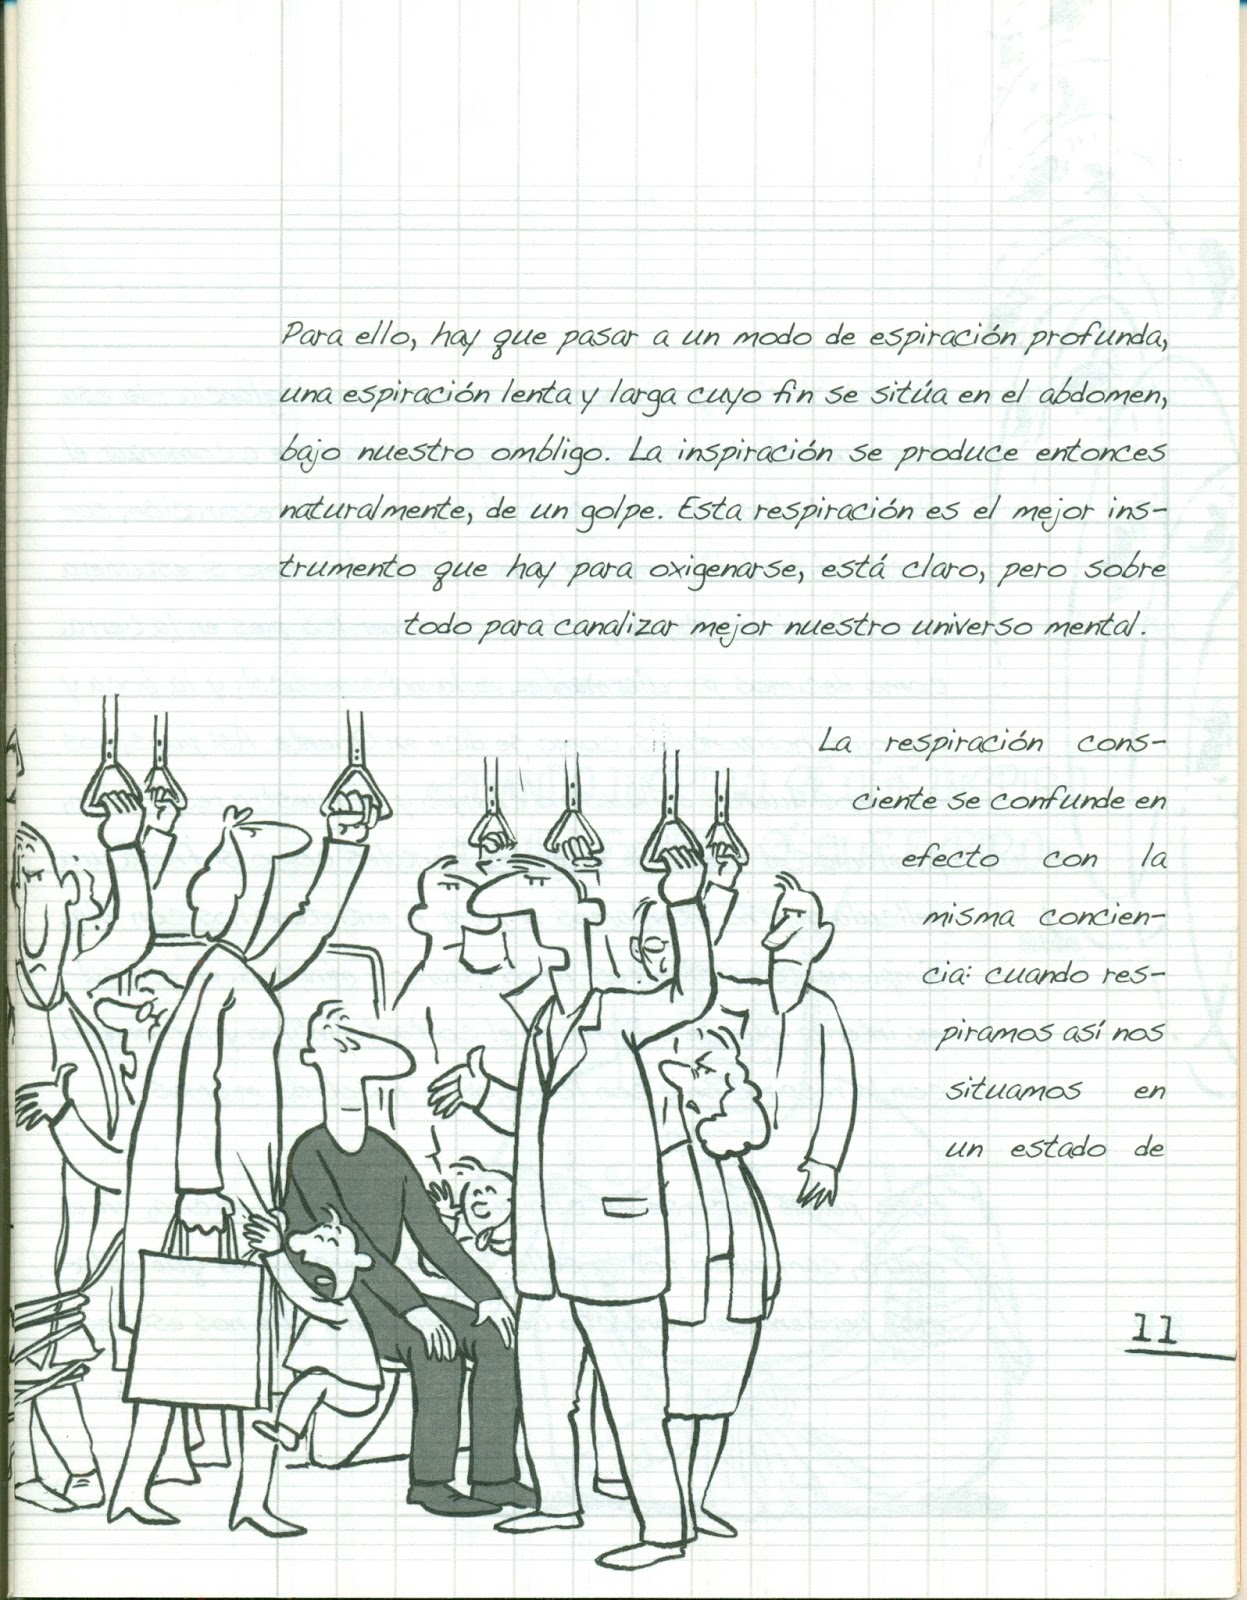 Para ello, hay que pasar a un modo de espiración profunda,
una espiración lenta y larga cuyo fin se sitúa en el abdomen,
bajo nuestro ombligo. La inspiración se produce entonces
naturalmente, de un golpe. Esta respiración es el mejor ins-
trumento que hay para oxigenarse, está claro, pero sobre
todo para canalizar mejor nuestro universo mental.
La respiración cons-
ciente se confunde en
efecto con la
misma concien-
cia: cuando res-
piramos así nos
situamos en
un estado de
11